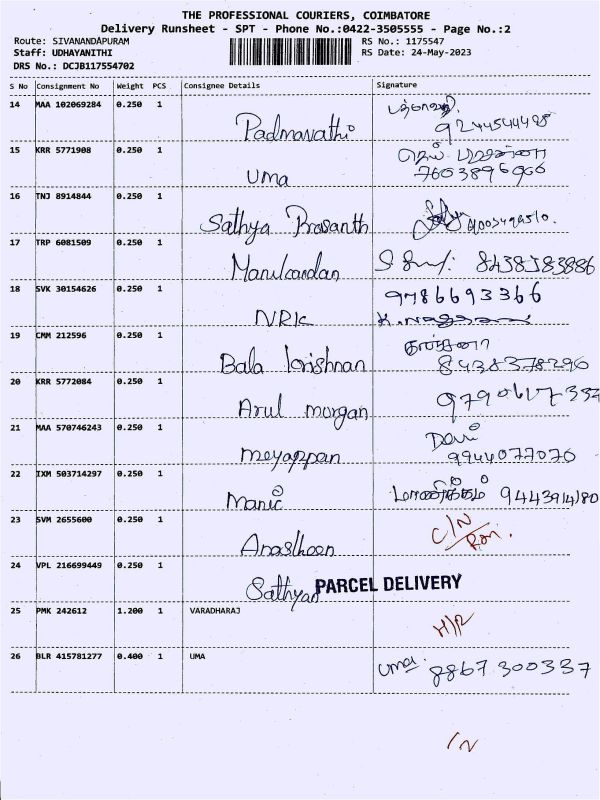 THE PROFESSIONAL COURIERS, COIMBATORE
Delivery Runsheet - SPT - Phone No.:0422-3505555 - Page No.:2
Route: SIVANANDAPURAM RS No.: 1175547
Staff: UDHAYANITHI RS Date: 24-May-2023
DRS No.: DCJB117554702
S No Consignment No Weight PCS Consignee Details Signature
14 MAA 102069284 0.250 1
Padmavathi 9244544498
15 KRR 5771908 0.250 1
Uma 7603896966
16 TNJ 8914844 0.250 1
Sathya Prasanth
17 TRP 6081509 0.250 1
Manikandan 8438383886
18 SVK 30154626 0.250 1 9786693366
NRK K. Nagaraj
19 CMM 212596 0.250 1
Bala krishnan 8438378296
20 KRR 5772084 0.250 1
Arul murgan
21 MAA 570746243 0.250 1 Devi
meyappan 9944077076
22 IXM 503714297 0.250 1
Manic மாணிக்கம் 9443914180
23 SVM 2655600 0.250 1 C/N
24 VPL 216699449 0.250 1
Sathyan PARCEL DELIVERY
25 PMK 242612 1.200 1 VARADHARAJ
26 BLR 415781277 0.400 1 UMA uma 8867300337